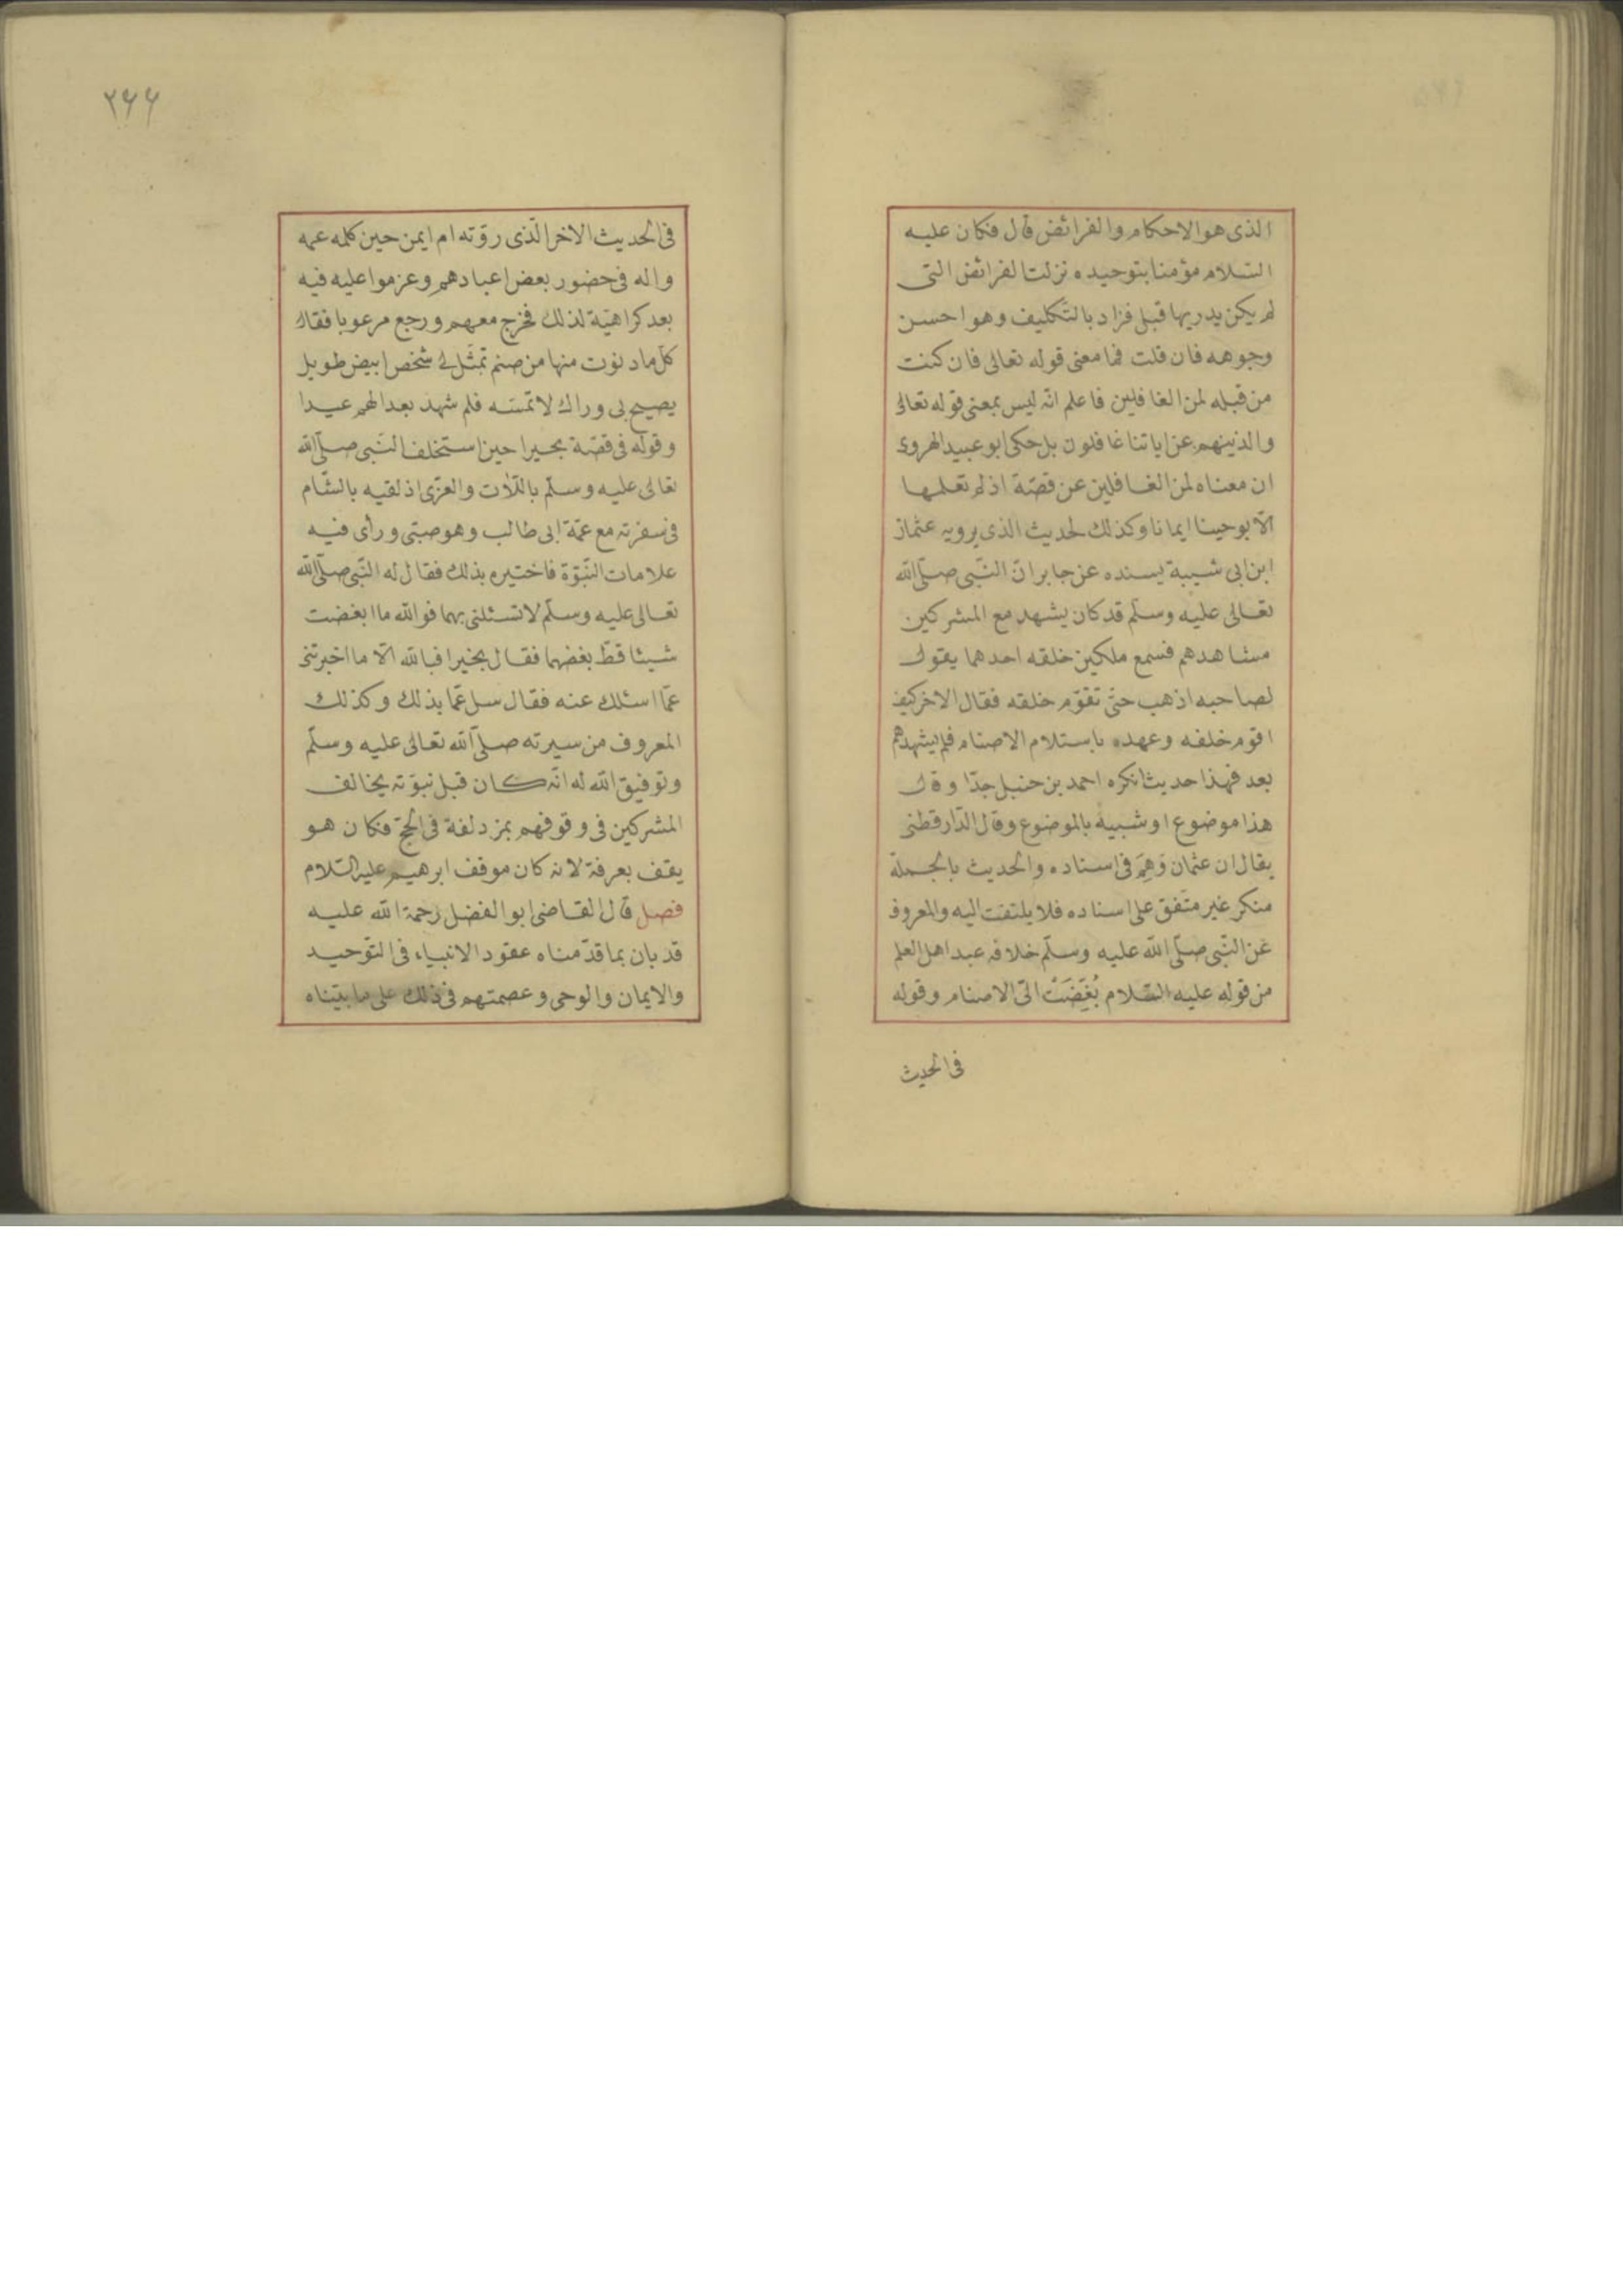 الذى هو الاحكام والفرائض قال فكان عليه
السلام مؤمنا بتوحيده نزلت الفرائض التى
لم يكن يدريها قبل فزاد بالتكليف وهو احسن
وجوهه فان قلت فما معنى قوله تعالى فان كنت
من قبله لمن الغافلين فاعلم انّه ليس بمعنى قوله تعالى
والذينهم عن اياتنا غافلون بل حكى ابو عبيد الهروى
ان معناه لمن الغافلين عن قصّة اذ لم تعلمها
الّا بوحينا ايمانا وكذلك الحديث الذى يرويه عثمان
ابن ابى شيبة يسنده عن جابر انّ النّبى صلّى الله
تعالى عليه وسلّم قد كان يشهد مع المشركين
مشاهدهم فسمع ملكين خلفه احدهما يقول
لصاحبه اذهب حتّى تقوّم خلقه فقال الاخر كيف
اقوم خلفه وعهده باستلام الاصنام فلم يشهدهم
بعد فهذا حديث انكره احمد بن حنبل جدّا وقال
هذا موضوع او شبيه بالموضوع وقال الدّارقطنى
يقال ان عثمان وَهِمَ فى اسناده والحديث بالجملة
منكر غير متّفق على اسناده فلا يلتفت اليه والمعروف
عن النّبى صلّى الله عليه وسلّم خلافه عند اهل العلم
من قوله عليه السّلام بُغِّضَتْ الىّ الاصنام وقوله
فى الحديث
٢٦٦
فى الحديث الاخر الّذى روّته ام ايمن حين كلمه عمه
واله فى حضور بعض اعيادهم وعزموا عليه فيه
بعد كراهيّة لذلك فخرج معهم ورجع مرعوبا فقال
كلّما دنوت منها من صنم تمثّل لى شخص ابيض طويل
يصيح بى وراك لا تمسّه فلم شهد بعد الهم عيدا
وقوله فى قصّة بحيرا حين استخلف النّبى صلّى الله
تعالى عليه وسلّم باللّات والعزّى اذ لقيه بالشّام
فى سفرته مع عمّة ابى طالب وهو صبىّ ورأى فيه
علامات النّبوّة فاختبره بذلك فقال له النّبى صلّى الله
تعالى عليه وسلّم لا تسئلنى بهما فوالله ما ابغضت
شيئا قطّ بغضهما فقال بخيرا فبالله الّا ما اخبرتنى
عمّا اسئلك عنه فقال سل عمّا بذلك وكذلك
المعروف من سيرته صلّى الله تعالى عليه وسلّم
وتوفيق الله له انّه كان قبل نبوّته يخالف
المشركين فى وقوفهم بمزدلفة فى الحجّ فكان هو
يقف بعرفة لانه كان موقف ابرهيم عليه السّلام
فصل قال القاضى ابو الفضل رحمة الله عليه
قد بان بما قدّمناه عقود الانبياء فى التّوحيد
والايمان والوحى وعصمتهم فى ذلك على ما بيّناه